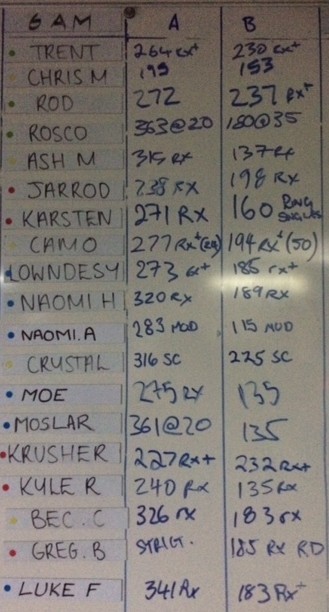 6 AM A B
TRENT 264 RX+ 230 RX+
CHRIS M 195 153
ROD 272 237 RX+
ROSCO 363@20 160@35
ASH M 315 RX 137 RX
JARROD 238 RX 198 RX
KARSTEN 271 RX 160 RING SINGLES
CAMO 277 RX+ 194 RX+ (50)
LOWNDESY 273 RX+ 185 RX+
NAOMI H 320 RX 189 RX
NAOMI.A 283 MOD 115 MOD
CRYSTAL 316 SC 225 SC
MOE 275 RX 135
MOSLAR 361@20 135
KRUSHER 227 RX+ 232 RX+
KYLE R 240 RX 135 RX
BEC.C 326 RX 183 RX
GREG.B STRICT. 185 RX RD
LUKE F 341 RX 183 RX+